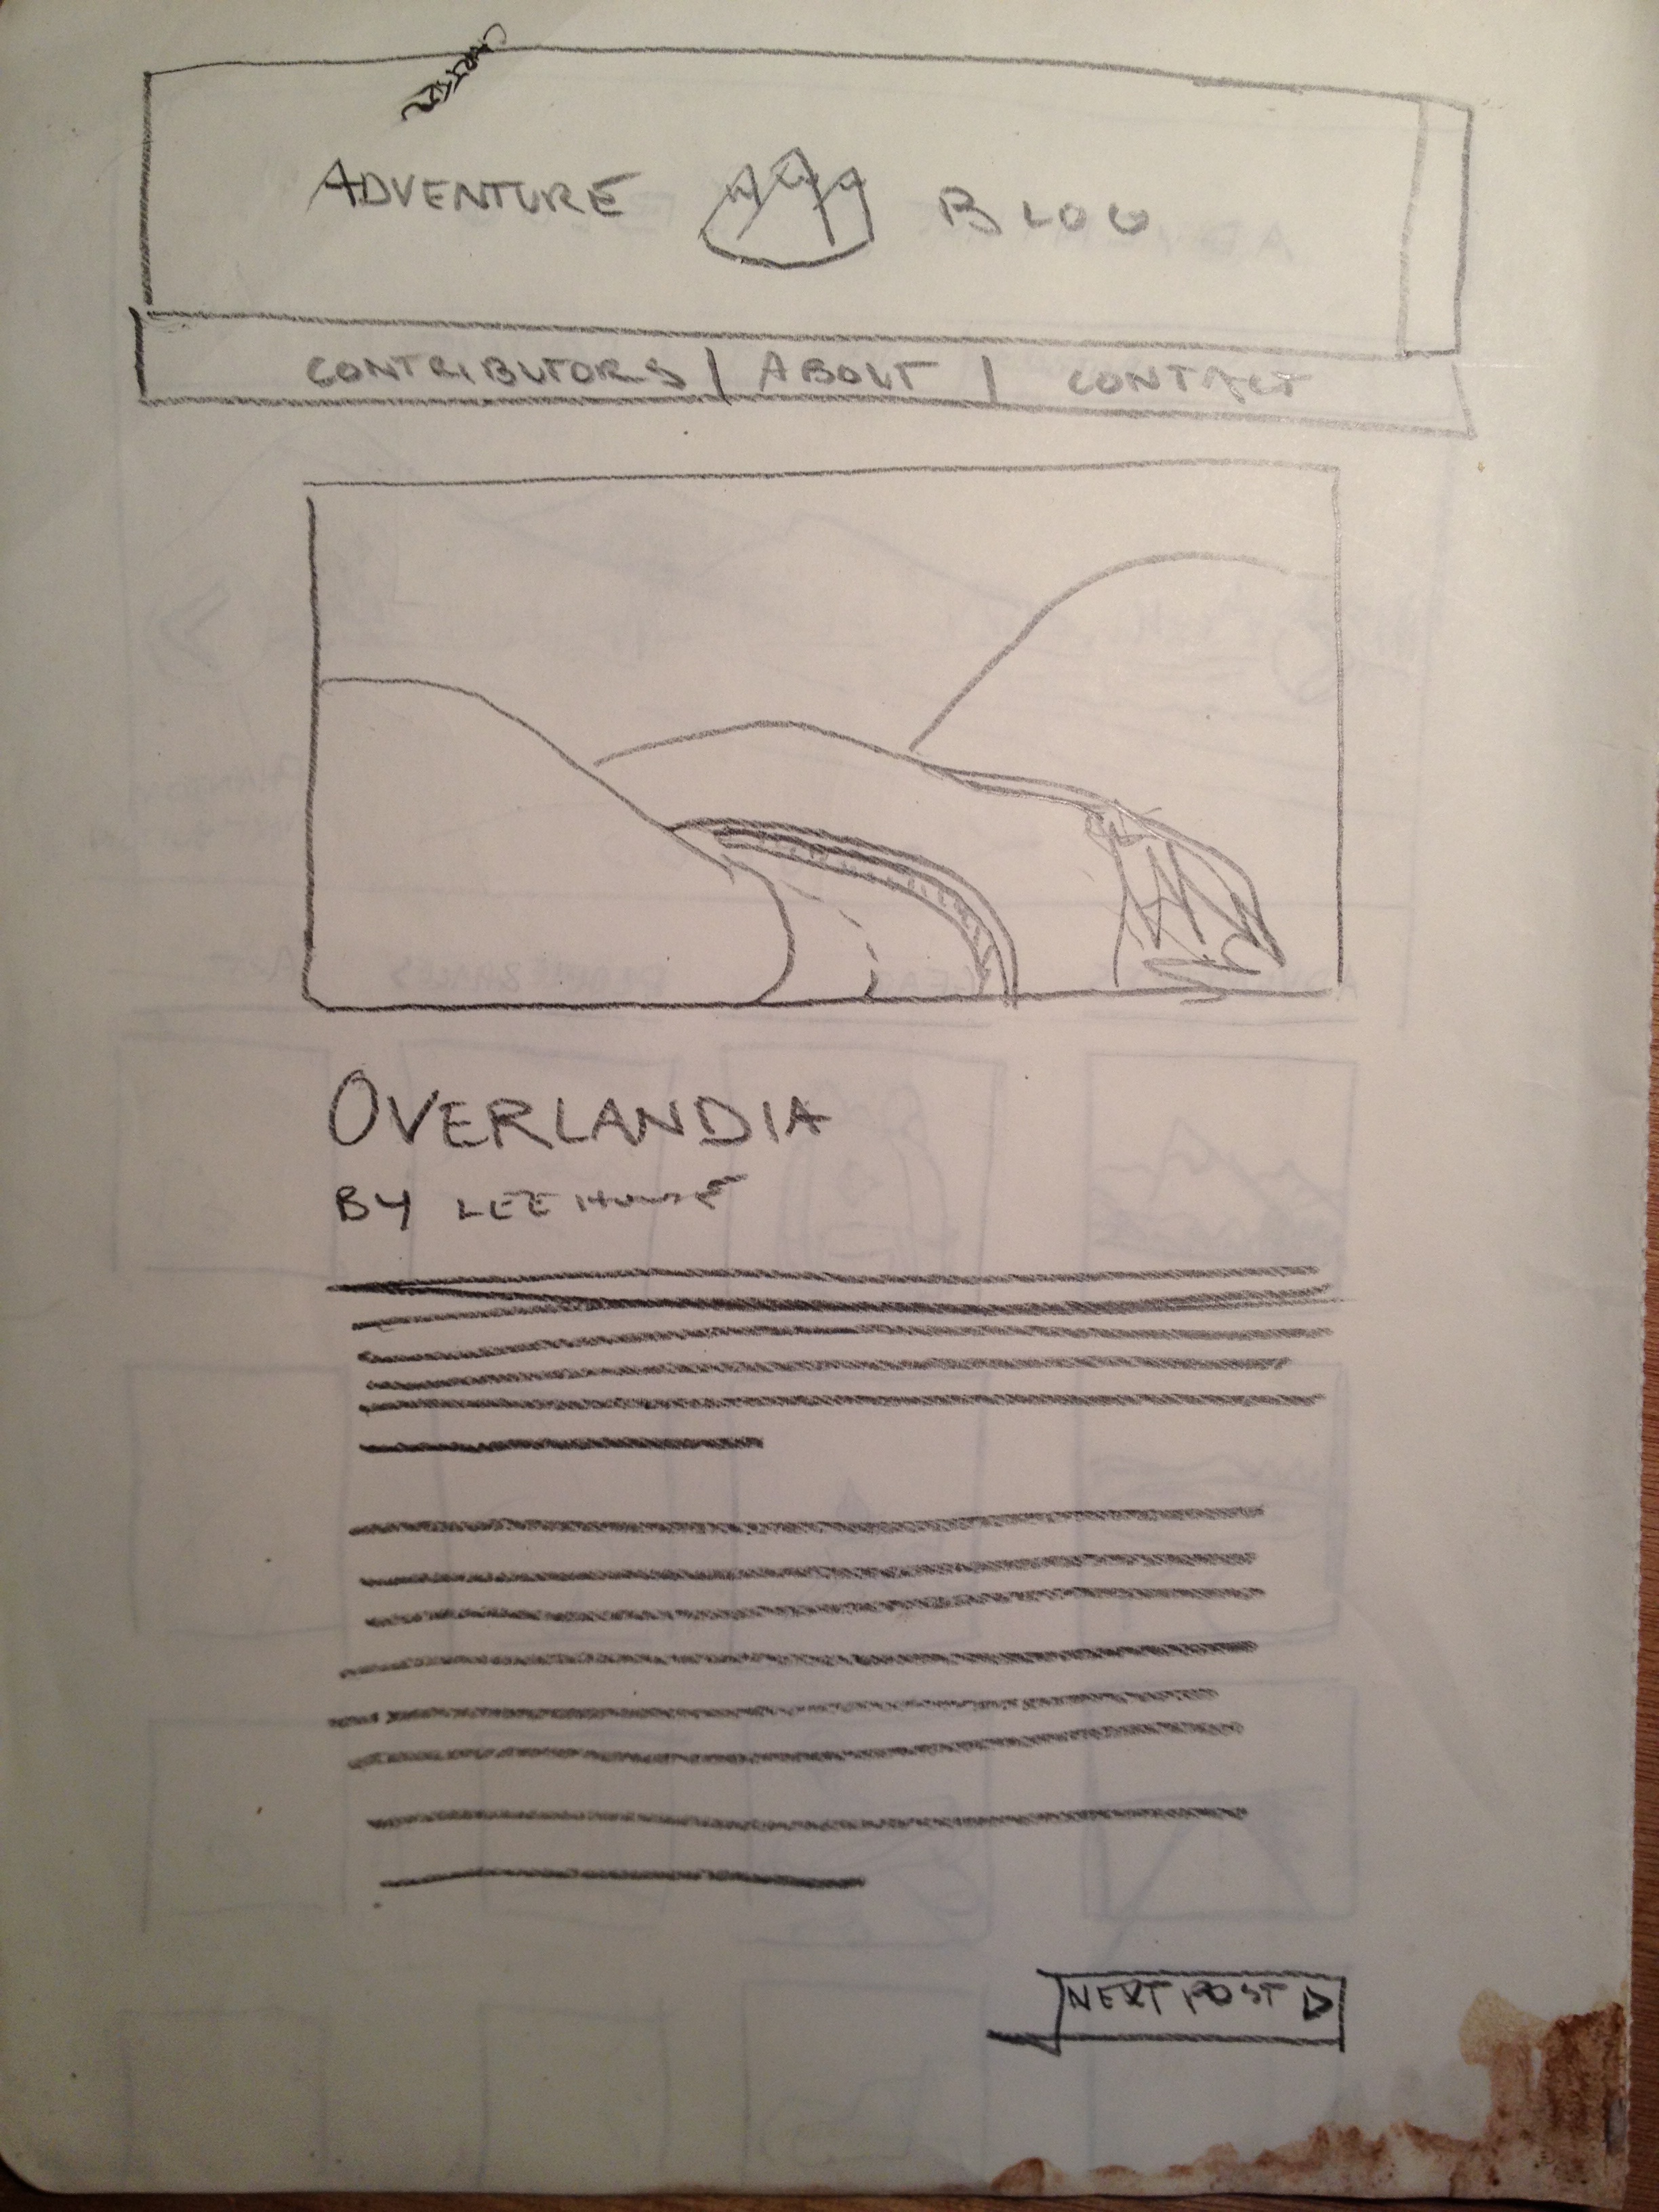 ADVENTURE BLOG
CONTRIBUTORS | ABOUT | CONTACT
OVERLANDIA
BY LEE
NEXT POST